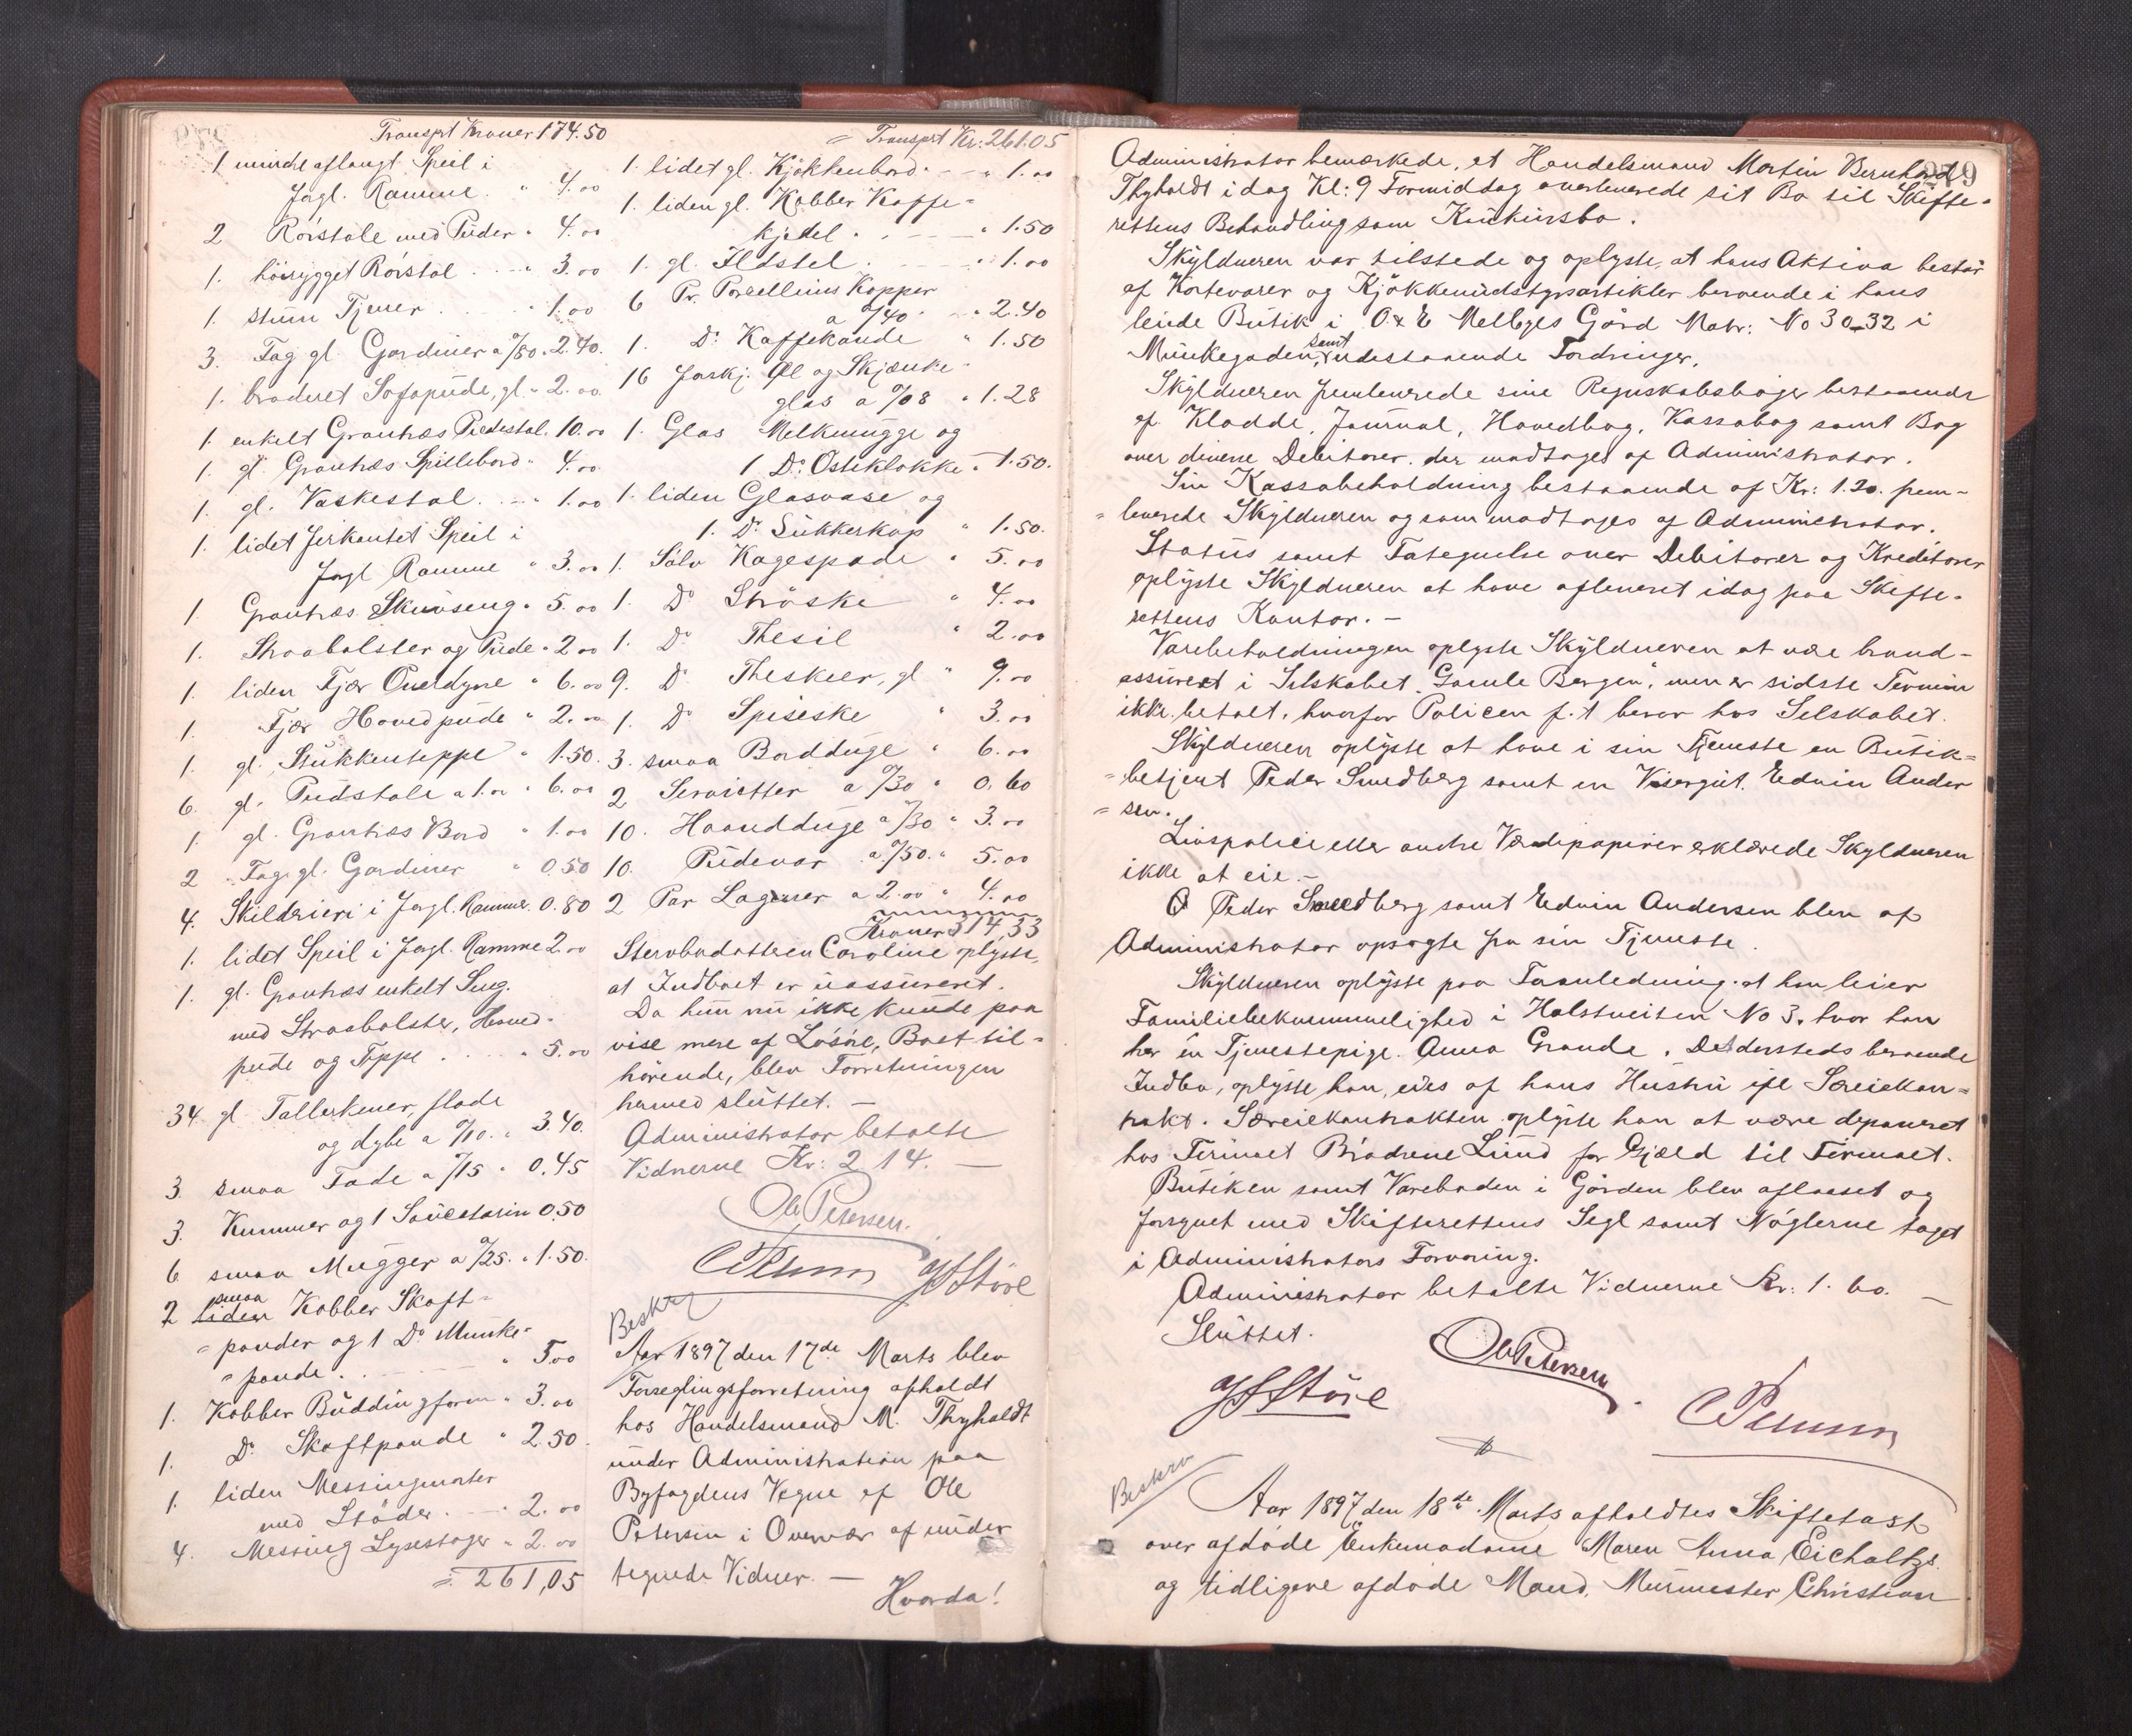 Transpt Kroner 174.50
1 mindre aflangt Speil i
forgl. Ramme. " 4.00
2 Rörstole med Puder " 4.00
1. höirygget Rörstol . . . " 3.00
1. stum Tjener . . . " 1.00
3. Fag gl. Gardiner a 0/80 " 2.40.
1. broderet Sofapude, gl. " 2.00
1. enkelt Grantræs Piedestal. 10.00
1. gl. Grantræs Spillebord " 4.00
1. gl. Vaskestol . . . " 1.00
1. lidet firkantet Speil i
forgl Ramme " 3.00
1. Grantræs Skuvseng " 5.00
1. Straabolster og Pude " 2.00
1. liden Fjær Overdyne " 6.00
1. Fjær Hovedpude " 2.00
1. gl. Stukketeppe " 1.50.
6. gl. Pudstole a 1.00 " 6.00
1. gl. Grantræs Bord " 1.00
2 Fag gl. Gardiner " 0.50
4. Skilderier i forgl. Rammer. 0.80
1. lidet Speil i forgl. Ramme 2.00
1. gl. Grantræs enkelt Seng.
med Straabolster, Hoved-
pude og Teppe . . . " 5.00
34. gl Tallerkener, flade
og dybe a 0/10. " 3.40.
3. smaa Fade a 0/15 " 0.45
3. Kummer og 1 Sauceterin 0.50
6 smaa Mugger a 0/25. " 1.50.
smaa
2 liden Kobber Skaft-
= pander og 1 Do Munke-
= pande . . . " 5.00
1. Kobber Buddingform " 3.00
1. Do Skaftpande " 2.50.
1. liden Messingmorter
med Stöder . . . " 2.00
4. Messing Lysestager " 2.00
= 261,05
= Transprt Kr: 261.05
1. lidet gl. Kjökkenbord . " 1.00
1. liden gl. Kobber Kaffe-
kjedel . . " 1.50
1. gl. Ildstel . . " 1.00
6 Pr. Porcellins Kopper
a 0/40 . " 2.40
1. Do Kaffekande " 1.50
16 forskj. Øl og Skjænke-
glas a 0/08 " 1.28
1. Glas Melkmugge og
1 Do Osteklokke " 1.50.
1. liden Glasvase og
1. Do Sukkerkop " 1.50.
1. Sölv Kagespade " 5.00
1. Do Ströske " 4.00
1. Do Thesil " 2.00
9. Do Theskeer, gl " 9.00
1. Do Spiseske " 3.00
3. smaa Bordduge " 6.00
2 Servietter a 0/30 " 0.60
10. Haandduge a 0/30 " 3.00
10. Pudevar a 0/50. " 5.00
2 Par Lagener a 2.00 " 4.00
Kroner 314,33
Stervbodatteren Caroline oplyste,
at Indboet er uassureret.
Da hun nu ikke kunde paa
vise mere af Lösöre, Boet til-
hörende, blev Forretningen
hermed sluttet. —
Administrator betalte
Vidnerne Kr: 2.14. —
Ole Petersen.
JSStöre
Beskr
Aar 1897 den 17de Marts blev
Forseglingsforretning afholdt
hos Handelsmand M. Thyholdt
under Administration paa
Byfogdens Vegne af Ole
Petersen i Overvær af under
tegnede Vidner. —
Hvorda!
279
Administrator bemærkede, at Handelsmand Martin Bernhard
Thyholdt idag Kl: 9 Formiddag overleverede sit Bo til Skifte-
rettens Behandling som Konkursbo.
Skyldneren var tilstede og oplyste, at hans Aktiva består
af Kortevarer og Kjökkenudstyrsartikler beroende i hans
leiede Butik i O. & E Mellbyes Gård Matr: No 30-32 i
samt
Munkegaden, udestaaende Fordringer.
Skyldneren fremleverede sine Regnskabsböger bestaaende
af Kladde, Journal, Hovedbog, Kassabog samt Bog
over diverse Debitorer. der modtoges af Administrator.
Sin Kassabeholdning bestaaende af Kr: 1.20. frem-
= leverede Skyldneren og som modtoges af Administrator.
Status samt Fategnelse over Debitorer og Kreditorer
oplyste Skyldneren at have afleveret idag paa Skifte-
rettens Kontor. —
Varebeholdningen oplyste Skyldneren at være brand-
assureret i Selskabet "Gamle Bergen", men er sidste Termin
ikke betalt, hvorfor Policen p. t beror hos Selskabet.
Skyldneren oplyste at have i sin Tjeneste en Butik=
= betjent Peder Smedberg samt en Visergut. Edvin Ander
= sen.
Livspolice eller andre Værdipapirer erklærede Skyldneren
ikke at eie. —
Peder Smedberg samt Edvin Andersen blev af
Administrator opsagte fra sin Tjeneste.
Skyldneren oplyste paa Foranledning at han leier
Familiebekvemmelighed i Holstveiten No 3. hvor han
har en Tjenestepige. Anna Grande. Det dersteds beroende
Indbo, oplyste han, eies af hans Hustru ifl Særeiekon=
trakt. Særeiekontrakten oplyste han at være deponeret
hos Firmaet Brödrene Lund for Gjæld til Firmaet.
Butiken samt Vareboden i Gården blev aflaaset og
forsynet med Skifterettens Segl samt Nöglerne taget
i Administrators Forvaring.
Administrator betalte Vidnerne Kr: 1. 60. —
Sluttet.
Ole Petersen
JSStöre
Beskrv
Aar 1897 den 18de Marts afholdtes Skiftetaxt
over afdöde Enkemadame Maren Anna Eicholtz.
og tidligere afdöde Mand, Murmester Christian